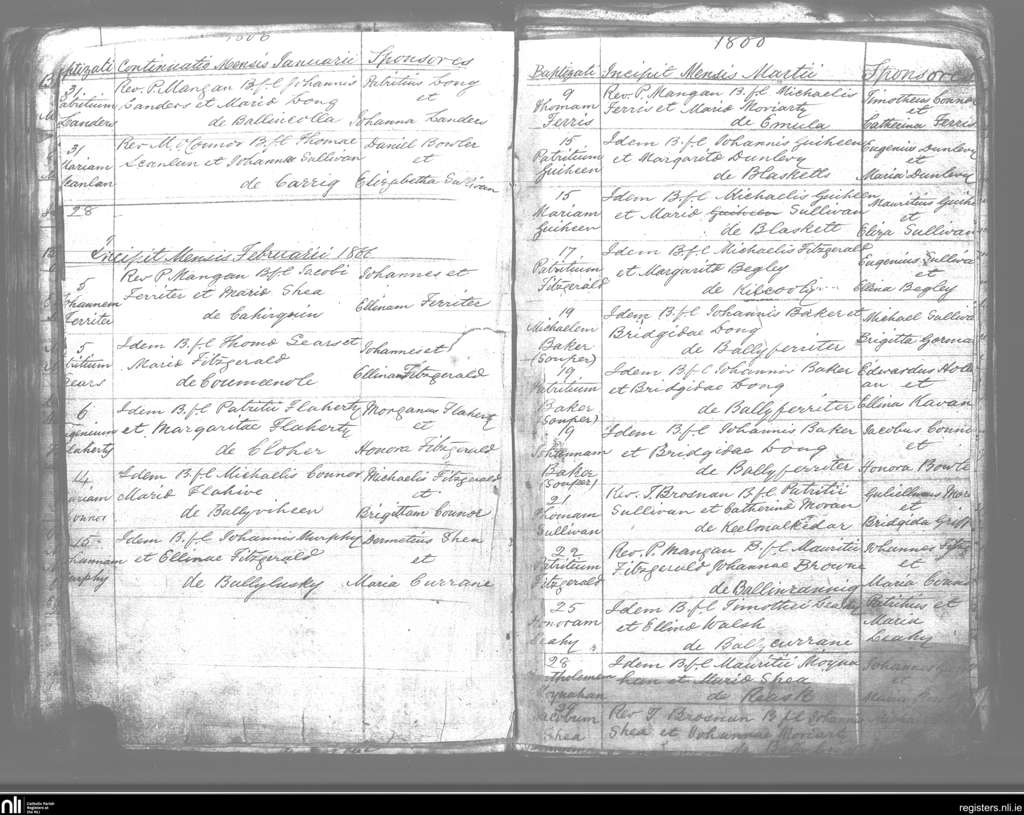 Baptizati Continuatio Mensis Januarii Sponsores
Rev. P. Mangan B.f.l Johannis Patritius Long
Patritium Landers et Maria Long et
Landers de Ballincolla Johanna Landers
31 Rev. M. O'Connor B.f.l Thomae Daniel Bowler
Mariam Scanlan et Johanna Sullivan et
Scanlan de Carrig Elizabetha Sullivan
28
Incipit Mensis Februarii
5 Rev P. Mangan B.f.l Jacobi Johannes et
Johannem Ferriter et Maria Shea
Ferriter de Cahirquin Ellinam Ferriter
5 Idem B.f.l Thoma Sears et Johannes et
Maria Fitzgerald Ellinam Fitzgerald
Sears de Coumenole
6 Idem B.f.l Patritii Flaherty Morganus Flaherty
et Margaritae Flaherty et
Flaherty de Cloher Honora Fitzgerald
14 Idem B.f.l Michaelis Connor Michaelis Fitzgerald
Mariam Maria Flahive et
Connor de Ballyviheen Brigittam Connor
15 Idem B.f.l Johannis Murphy Dermetius Shea
et Ellinae Fitzgerald et
Murphy de Ballylusky Maria Currane
Baptizati Incipit Mensis Martii Sponsores
9 Rev. P. Mangan B.f.l Michaelis Timotheus Connor
Thomam Ferris et Maria Moriarty et
Ferris de Emula Catherina Ferris
15 Idem B.f.l Johannis Guiheen Eugenius Dunlevy
Patritium et Margarita Dunlevy et
Guiheen de Blasketts Maria Dunlevy
15 Idem B.f.l Michaelis Guiheen Mauritius Guihe
Mariam et Maria Guiheen Sullivan et
Guiheen de Blaskett Eliza Sullivan
17 Idem B.f.l Michaelis Fitzgerald Eugenius Sulliva
Patritium et Margarita Begley et
Fitzgerald de Kilcooly Ellena Begley
19 Idem B.f.l Johannis Baker et Michael Sulliva
Michaelem Bridgidae Long Brigitta Gorma
Baker de Ballyferriter
(Souper)
19 Idem B.f.l Johannis Baker Edwardus Holl
Patritium et Bridgidae Long an et
Baker de Ballyferriter Ellina Kavan
(Souper)
19 Idem B.f.l Johannis Baker Jacobus Conni
Johannam et Bridgidae Long et
Baker de Ballyferriter Honora Bowle
(Souper)
21 Rev. T. Brosnan B.f.l Patritii Gulielmus Mor
Thomam Sullivan et Catherina Moran et
Sullivan de Keelonalkedar Bridgida Griff
22 Rev. P. Mangan B.f.l Mauritii Johannes Fitzg
Patritium Fitzgerald Johannae Browne et
Fitzgerald de Ballinrannig Maria Conno
25 Idem B.f.l Timothei Leahy Patritius et
Honoram et Ellina Walsh Maria
Leahy de Ballycurrane Leahy
28 Idem B.f.l Mauritii Moyna Johannes
han et Maria Shea et
Moynahan de Reask Maria
Jacobum Rev T. Brosnan B.f.l
Shea Shea et Johannae Moriarty
nli
Catholic Parish
Registers at
the NLI
registers.nli.ie